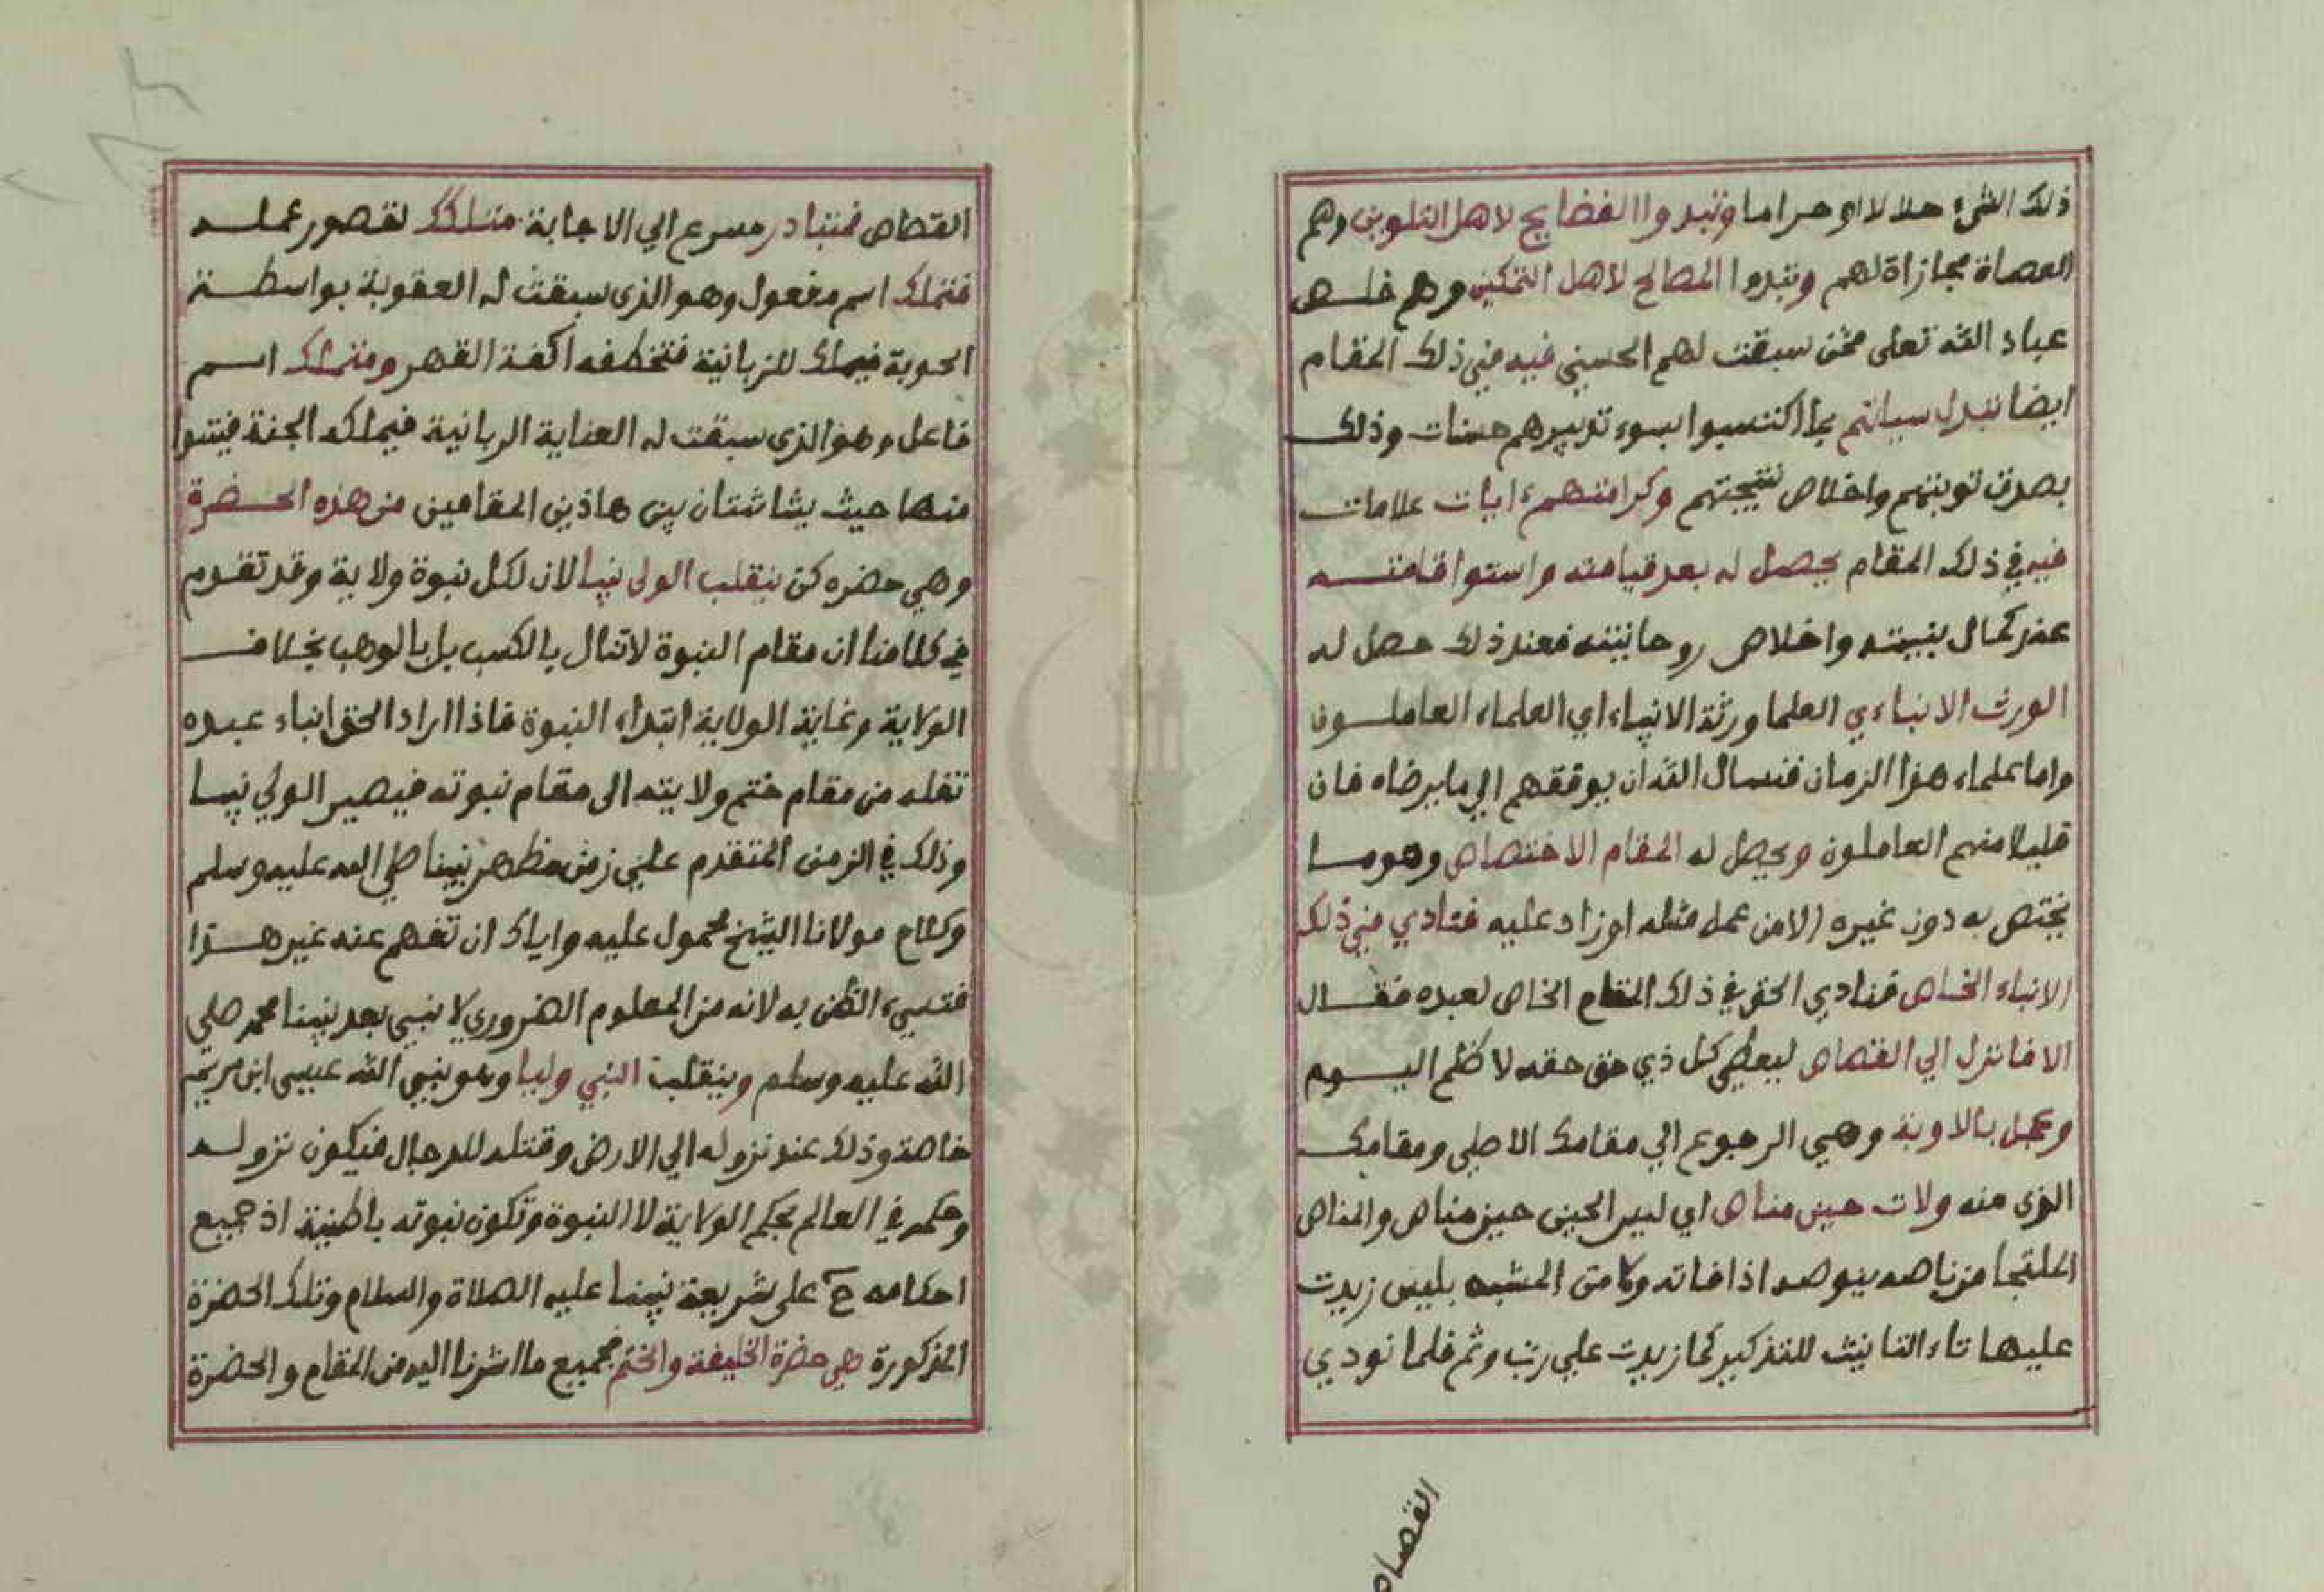 ذلك الشيء حلالا او حراما وتبدوا الفضايح لاهل التلوين وهم
العصاة مجازاة لهم وتبدوا المصالح لاهل التمكين وهم خلص
عباد الله تعلى ممن سبقت لهم الحسني فيه في ذلك المقام
ايضا تبدل سياتهم بما اكتسبوا بسوء تدبيرهم حسنات وذلك
بصدق توبتهم واخلاص نتيجتهم وكرامتهم ايات علامات
فيه في ذلك المقام يحصل له بعد قيامته واستوا قامته
عند كمال بنيته واخلاص روحانيته فعند ذلك حصل له
الورث الانباءي العلما ورثة الانبياء اي العلماء العاملون
واما علماء هذا الزمان فنسال الله ان يوفقهم الي ما يرضاه فان
قليلا منهم العاملون ويحصل له المقام الاختصاص وهو ما
يختص به دون غيره الا من عمل مثله او زاد عليه فنادي في ذلك
الانباء الخاص فنادي الحق في ذلك المقام الخاص لعبده فقال
الا فانزل الي القصاص ليعطي كل ذي حق حقه لا ظلم اليوم
وعجل بالاوبة وهي الرجوع الي مقامك الاصلي ومقامك
الذي منه ولات حين مناص اي ليس الحين حين مناص والمناص
الملتجا من ناصه ينوصه اذا فاته ولا من المشبه بليس زيدت
عليها تاء التانيث للتذكير كما زيدت علي رب وثم فلما نودي
القصاص
القصاص فتبادر مسرع الي الاجابة متملك لقصور عمله
فتملك اسم مفعول وهو الذي سبقت له العقوبة بواسطة
الحوبة فيملك للزبانية فتخطفه اكفة القهر ومتملك اسم
فاعل وهو الذي سبقت له العناية الربانية فيملك الجنة فيتبوا
منها حيث يشا شتان بين هاذين المقامين من هذه الحضرة
وهي حضره كن ينقلب الولي نبيا لان لكل نبوة ولاية وقد تقدم
في كلامنا ان مقام النبوة لا تنال بالكسب بل بالوهب بخلاف
الولاية وغاية الولاية ابتداء النبوة فاذا اراد الحق انباء عبده
نقله من مقام ختم ولايته الى مقام نبوته فيصير الولي نبيا
وذلك في الزمن المتقدم علي زمن مظهر نبينا صلي الله عليه وسلم
وكلام مولانا الشيخ محمول عليه واياك ان تفهم عنه غير هذا
فتسيء الظن به لانه من المعلوم الضروري لا نبي بعد نبينا محمد صلي
الله عليه وسلم وينقلب النبي وليا وهو نبي الله عيسى ابن مريم
خاصة وذلك عند نزوله الي الارض وقتله للدجال فيكون نزوله
وحكمه في العالم بحكم الولاية لا النبوة وتكون نبوته باطنية اذ جميع
احكامه ح على شريعة نبينا عليه الصلاة والسلام وتلك الحضرة
المذكورة هي حضرة الخليفة والختم فجميع ما اشرنا اليه من المقام والحضرة